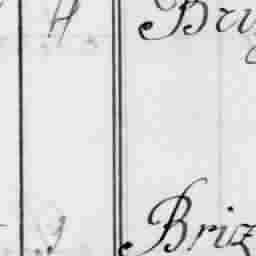 H Bri
g Briz